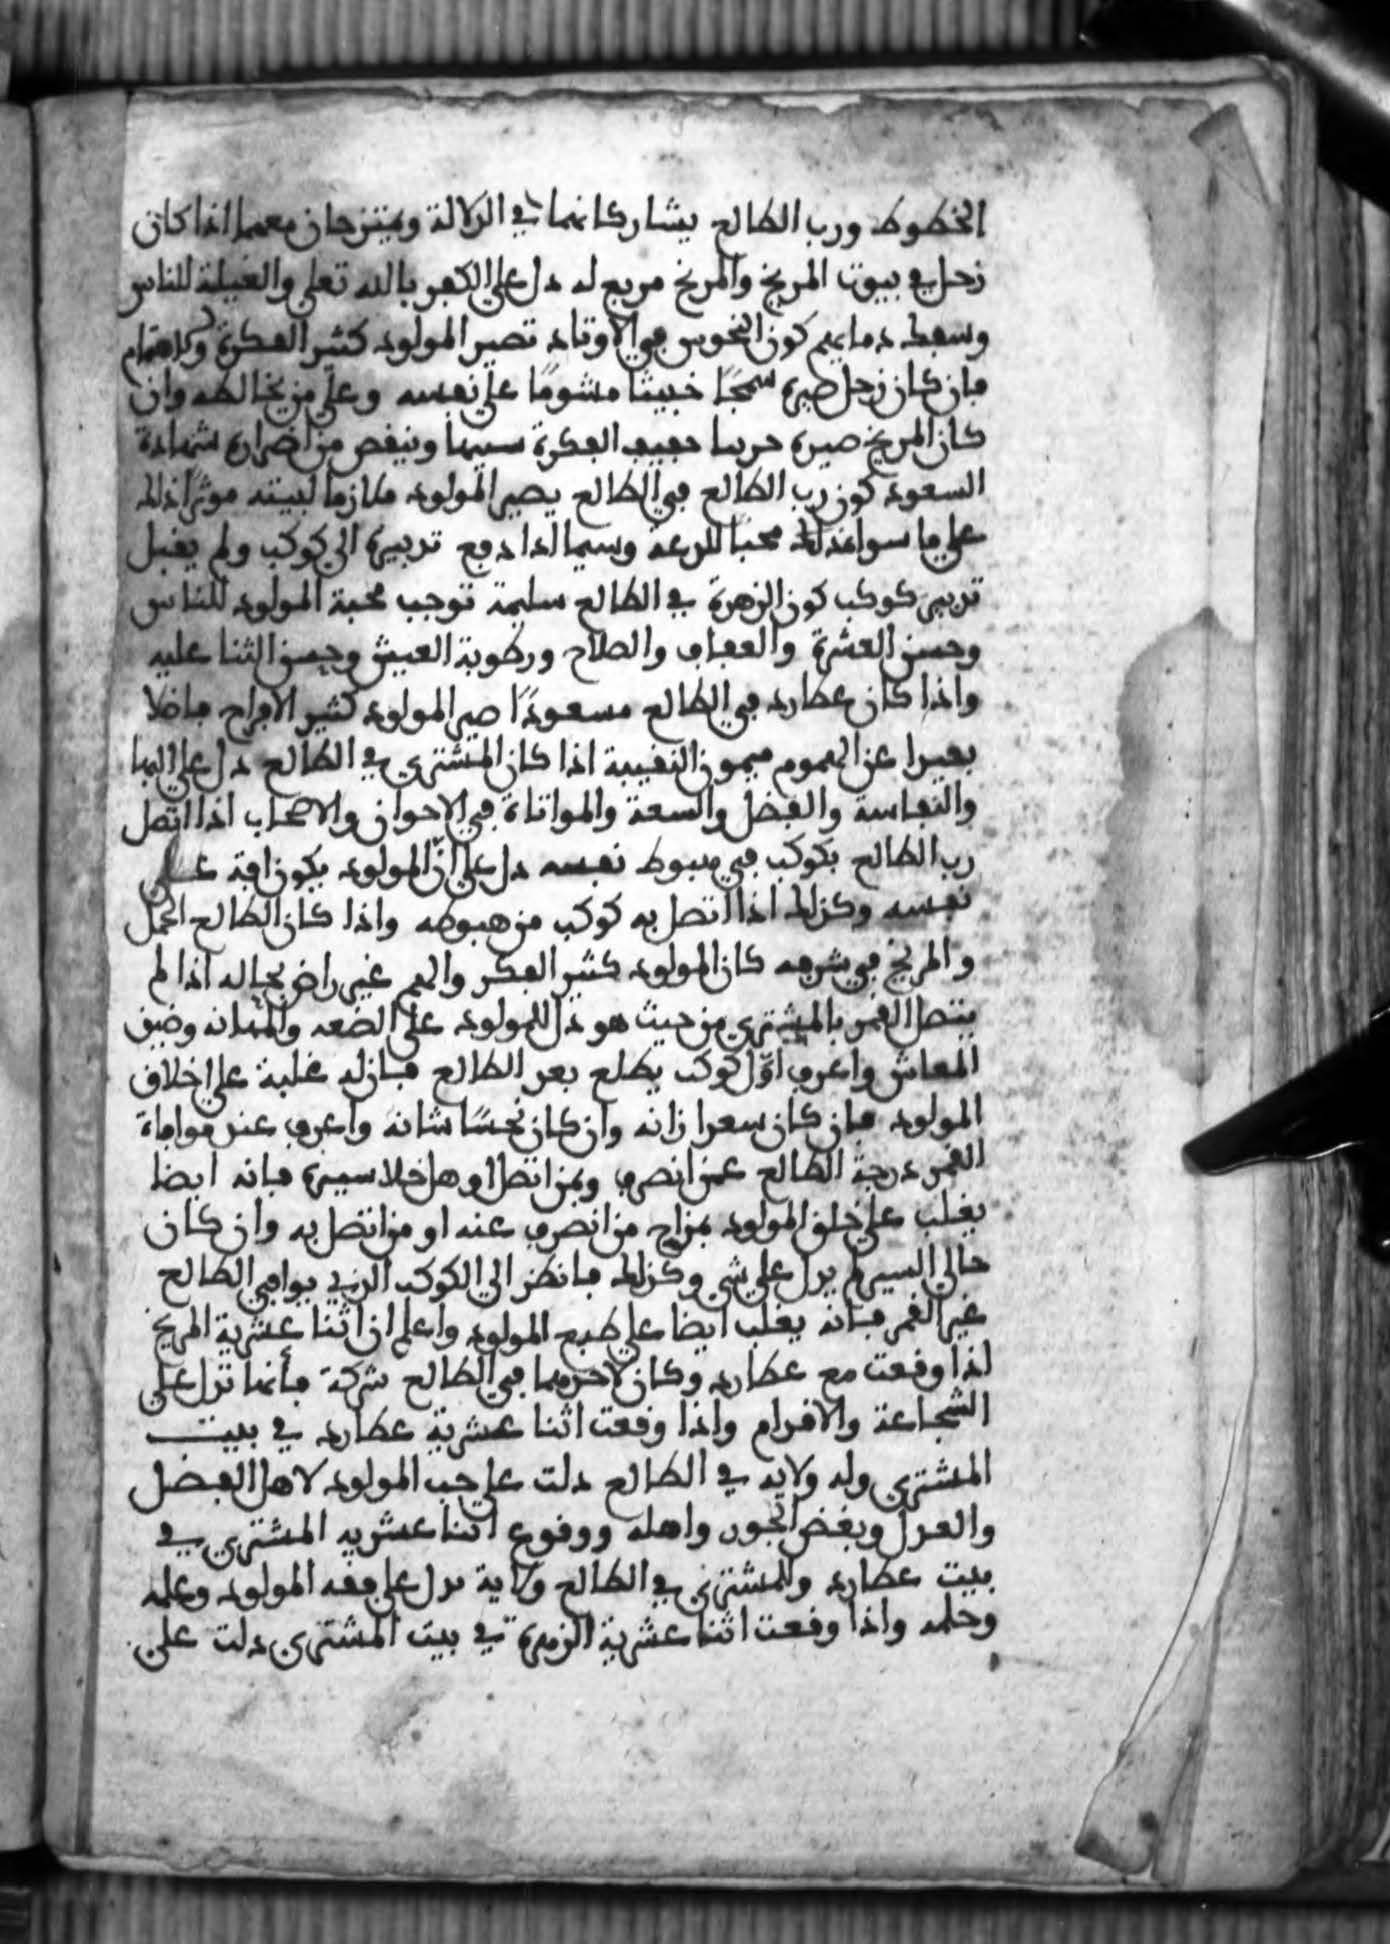 الخطوط ورب الطالع يشاركانهما في الدلالة ويمتزجان معهما اذا كان
زحل في بيوت المريخ والمريخ مربع له دل على الكفر بالله تعلى والغيلة للناس
وسفك دمايهم كون النحوس في الاوتاد تصير المولود كثير الفكرة والاهتمام
فان كان زحل صيره سمجًا خبيثا مشومًا على نفسه وعلى من يخالطه وان
كان المريخ صيره حربيا خفيف الفكرة سفيها وينقص من اضراره شهادة
السعود كون رب الطالع في الطالع يصير المولود ملازما لبيته موثرا ذلك
على ما سواه محبًا للدعة وسيما اذا دفع تدبيره الى كوكب ولم يقبل
تدبير كوكب كون الزهرة في الطالع سليمة توجب محبة المولود للناس
وحسن العشرة والعفاف والصلاح ورطوبة العيش وحسن الثنا عليه
واذا كان عطارد في الطالع مسعودًا صير المولود كثير الافراح فاضلا
بعيدا عن الهموم ميمون النقيبة اذا كان المشتري في الطالع دل على البها
والنفاسة والفضل والسعة والمواتاة في الاخوان والاصحاب اذا اتصل
رب الطالع بكوكب في هبوط نفسه دل على انّ المولود يكون افة على
نفسه وكذلك اذا اتصل به كوكب من هبوطه واذا كان الطالع الحمل
والمريخ في شرفه كان المولود كثير الفكر والهم غير راض بحاله اذا لم
يتصل القمر بالمشتري من حيث هو دل للمولود على الضعه والمهانه وضيق
المعاش واعرف اوّل كوكب يطلع بعد الطالع فان له غلبة على اخلاق
المولود فان كان سعدا زانه وان كان نحسًا شانه واعرف عند موافاة
القمر درجة الطالع عمن انصرف وبمن اتصل او هل خلا سيره فانه ايضا
يغلب على خلق المولود بمزاج من انصرف عنه او من اتصل به وان كان
خالي السير لم يدل على شي وكذلك فانظر الى الكوكب الذي يوافي الطالع
غير القمر فانه يغلب ايضا على طبع المولود واعلم ان اثنا عشرية المريخ
اذا وقعت مع عطارد وكان لاحدهما في الطالع شركة فأنها تدل على
الشجاعة والاقدام واذا وقعت اثنا عشرية عطارد في بيت
المشتري وله ولايه في الطالع دلت على حب المولود لاهل الفضل
والعدل وبغض الجور واهله ووقوع اثنا عشريه المشتري في
بيت عطارد وللمشتري في الطالع ولاية يدل على فقه المولود وعلمه
وحلمه واذا وقعت اثنا عشرية الزهرة في بيت المشتري دلت على